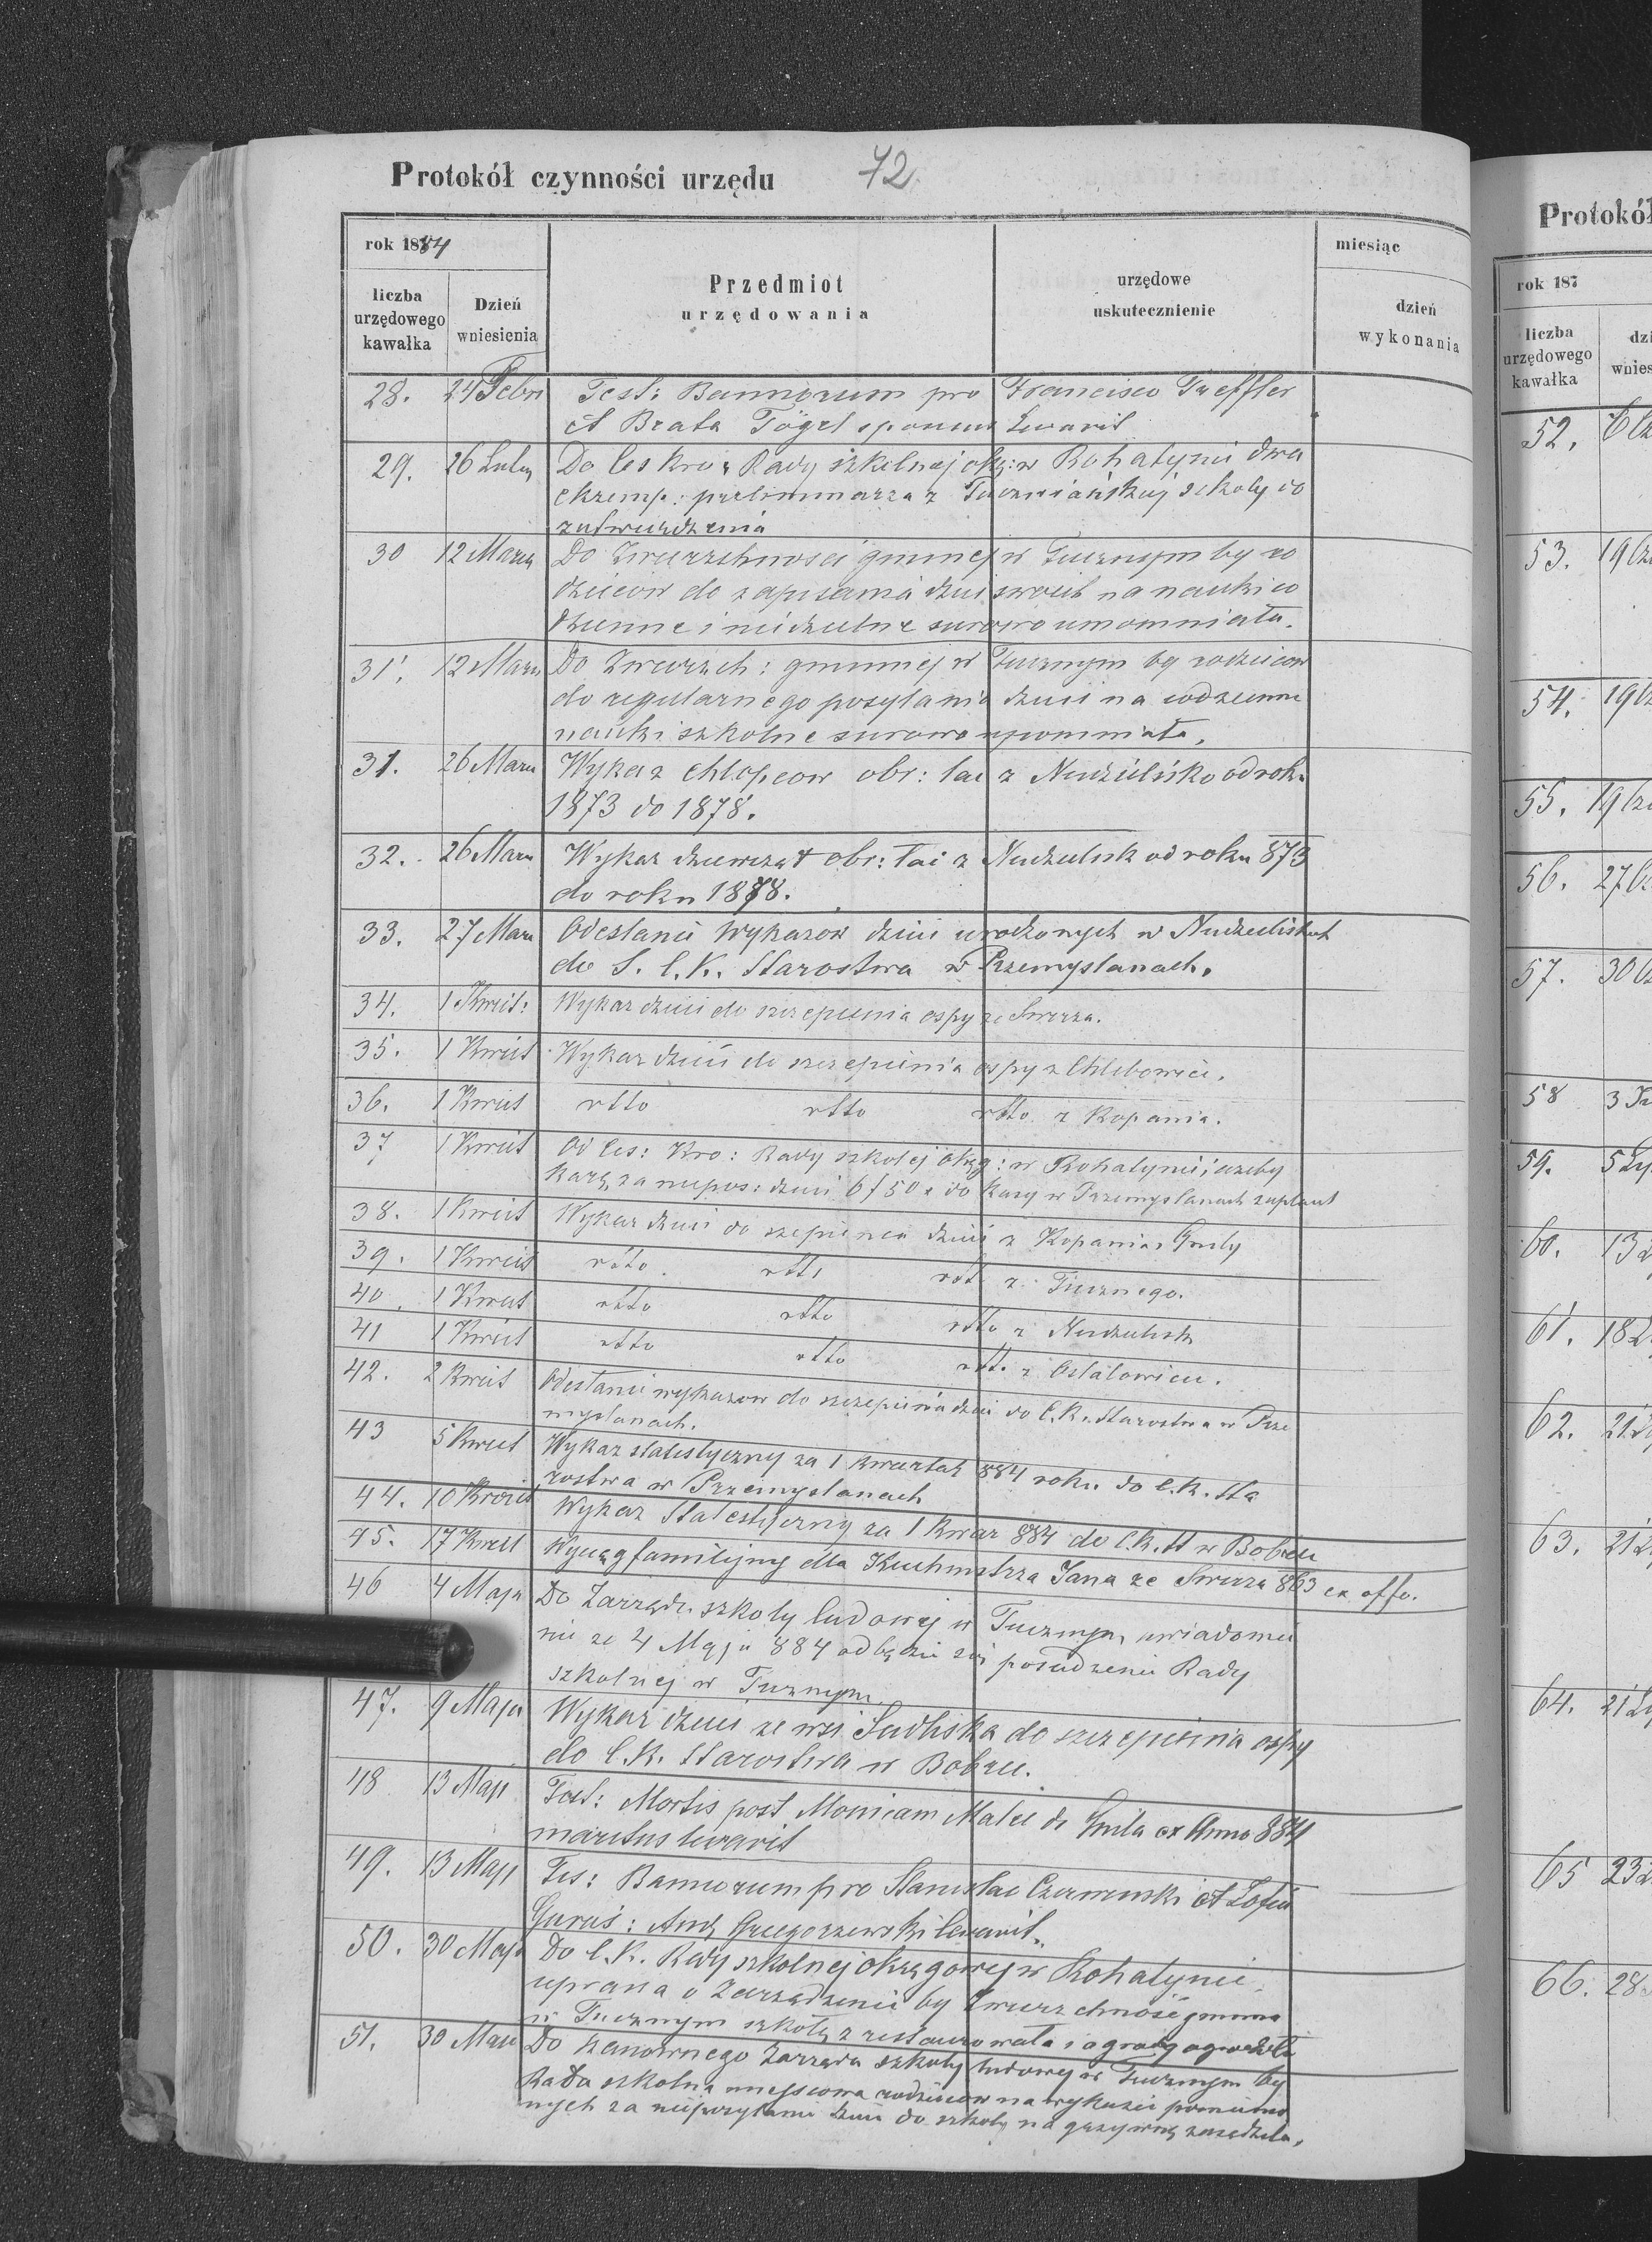 Protokół czynności urzędu 72.
rok 1884
miesiąc
liczba urzędowego kawałka
Dzień wniesienia
Przedmiot urzędowania
urzędowe uskutecznienie
dzień wykonania
28. 24 Febr Test: Bannorum pro Francisco Treffler
et Beata Tögel sponsus levavit
29. 26 Luteg Do Ces Kro: Rady szkolnej okg: w Rohatynie dwa
ekzemp: preliminarza z Tuczniańskiej szkoly do
zatwierdzenia
30 12 Marca Do Zwierzchnosci gminej w Tucznym by ro
dzicow do zapisania dzieci swoich na nauki co
dzienne i niedzielne surowo
31. 12 Marca Do Zwierzch: gminnej w Tucznym by rodzicow
do regularnego posylania dzieci na codzienne
nauki szkolne surowo upomniała.
31. 26 Marca Wykaz chlopcow obr: lac z od roku
1873 do 1878.
32. 26 Marca Wykaz dziewcząt obr: łac z od roku 873
do roku 1878.
33. 27 Marca Odeslanie Wykazow dzieci urodzonych w
do S. C. K. Starostwa w Przemyslanach.
34. 1 Kwiet: Wykaz dzieci do szczepienia ospy ze Swirza.
35. 1 Kwiet Wykaz dzieci do szczepienia ospy z Chlebowice.
36. 1 Kwiet dtto dtto dtto z Kopania.
37 1 Kwiet Od Ces: Kro: Rady szkolej okręg: w Rohatynie, azeby
karę za niepos: dzieci 6 f 50 x do kasy w Przemyslanach
38. 1 Kwiet Wykaz dzieci do dzieci z Kopania,
39. 1 Kwiet dtto dtto dtt z Tucznego.
40. 1 Kwiet dtto dtto dtto z
41 1 Kwiet dtto dtto dtto z Ostalowiec.
42. 2 Kwiet Odeslanie wykazow do szczepienia dzieci do C. K. Starostwa w Prze
myslanach.
43 5 Kwiet Wykaz statistyczny za 1 kwartał 884 roku do C. K. Sta
rostwa w Przemyslanach
44. 10 Kwiet Wykaz Statestyczny za 1 kwar 884 do C. K. St w Bobrce
45. 17 Kwiet Wyciąg familijny dla Kuchmistrza Jana ze Swirza 863 ex offo.
46 4 Maja Do Zarządu szkoly ludowej w Tucznym, uwiadomie
nie ze 4 Maja 884 odbędzie się posiedzenie Rady
szkolnej w Tucznym.
47. 9 Maja Wykaz dzieci ze wsi Siedliska do szczepienia ospy
do C. K. Starostwa w Bobrce.
48 13 Maji Test: Mortis post Monicam de ex Anno 884
maritus levavit
49. 13 Maji Tes: Bannorum pro Stanislae Czerwinski et Zofia
50. 30 Maja Do C. K. Rady szkolnej okręgowej w Rohatynie
uprasza o Zarządzenie by Zwierzchność gminna
w Tucznym szkolę zrestaurowała i
51. 30 Maja Do Zarządu szkoly ludowej w Tucznym by
Rada szkolna miejscowa rodzicow na wykazie
nych za nieposylanie dzieci do szkoły na grzywnę zasądziła.
Protokół
rok 187
liczba urzędowego kawałka
52.
53. 19
54. 19
55. 19
56. 27
57. 30
58 3
59. 5
60. 13
61. 18
62. 21
63. 21
64. 21
65 23
66. 28